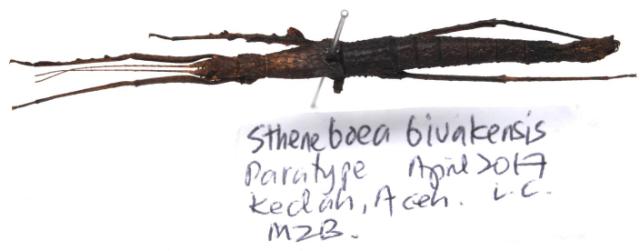 Stheneboea bivakensis
Paratype April 2017
Kedah, Aceh. L.C.
MZB.